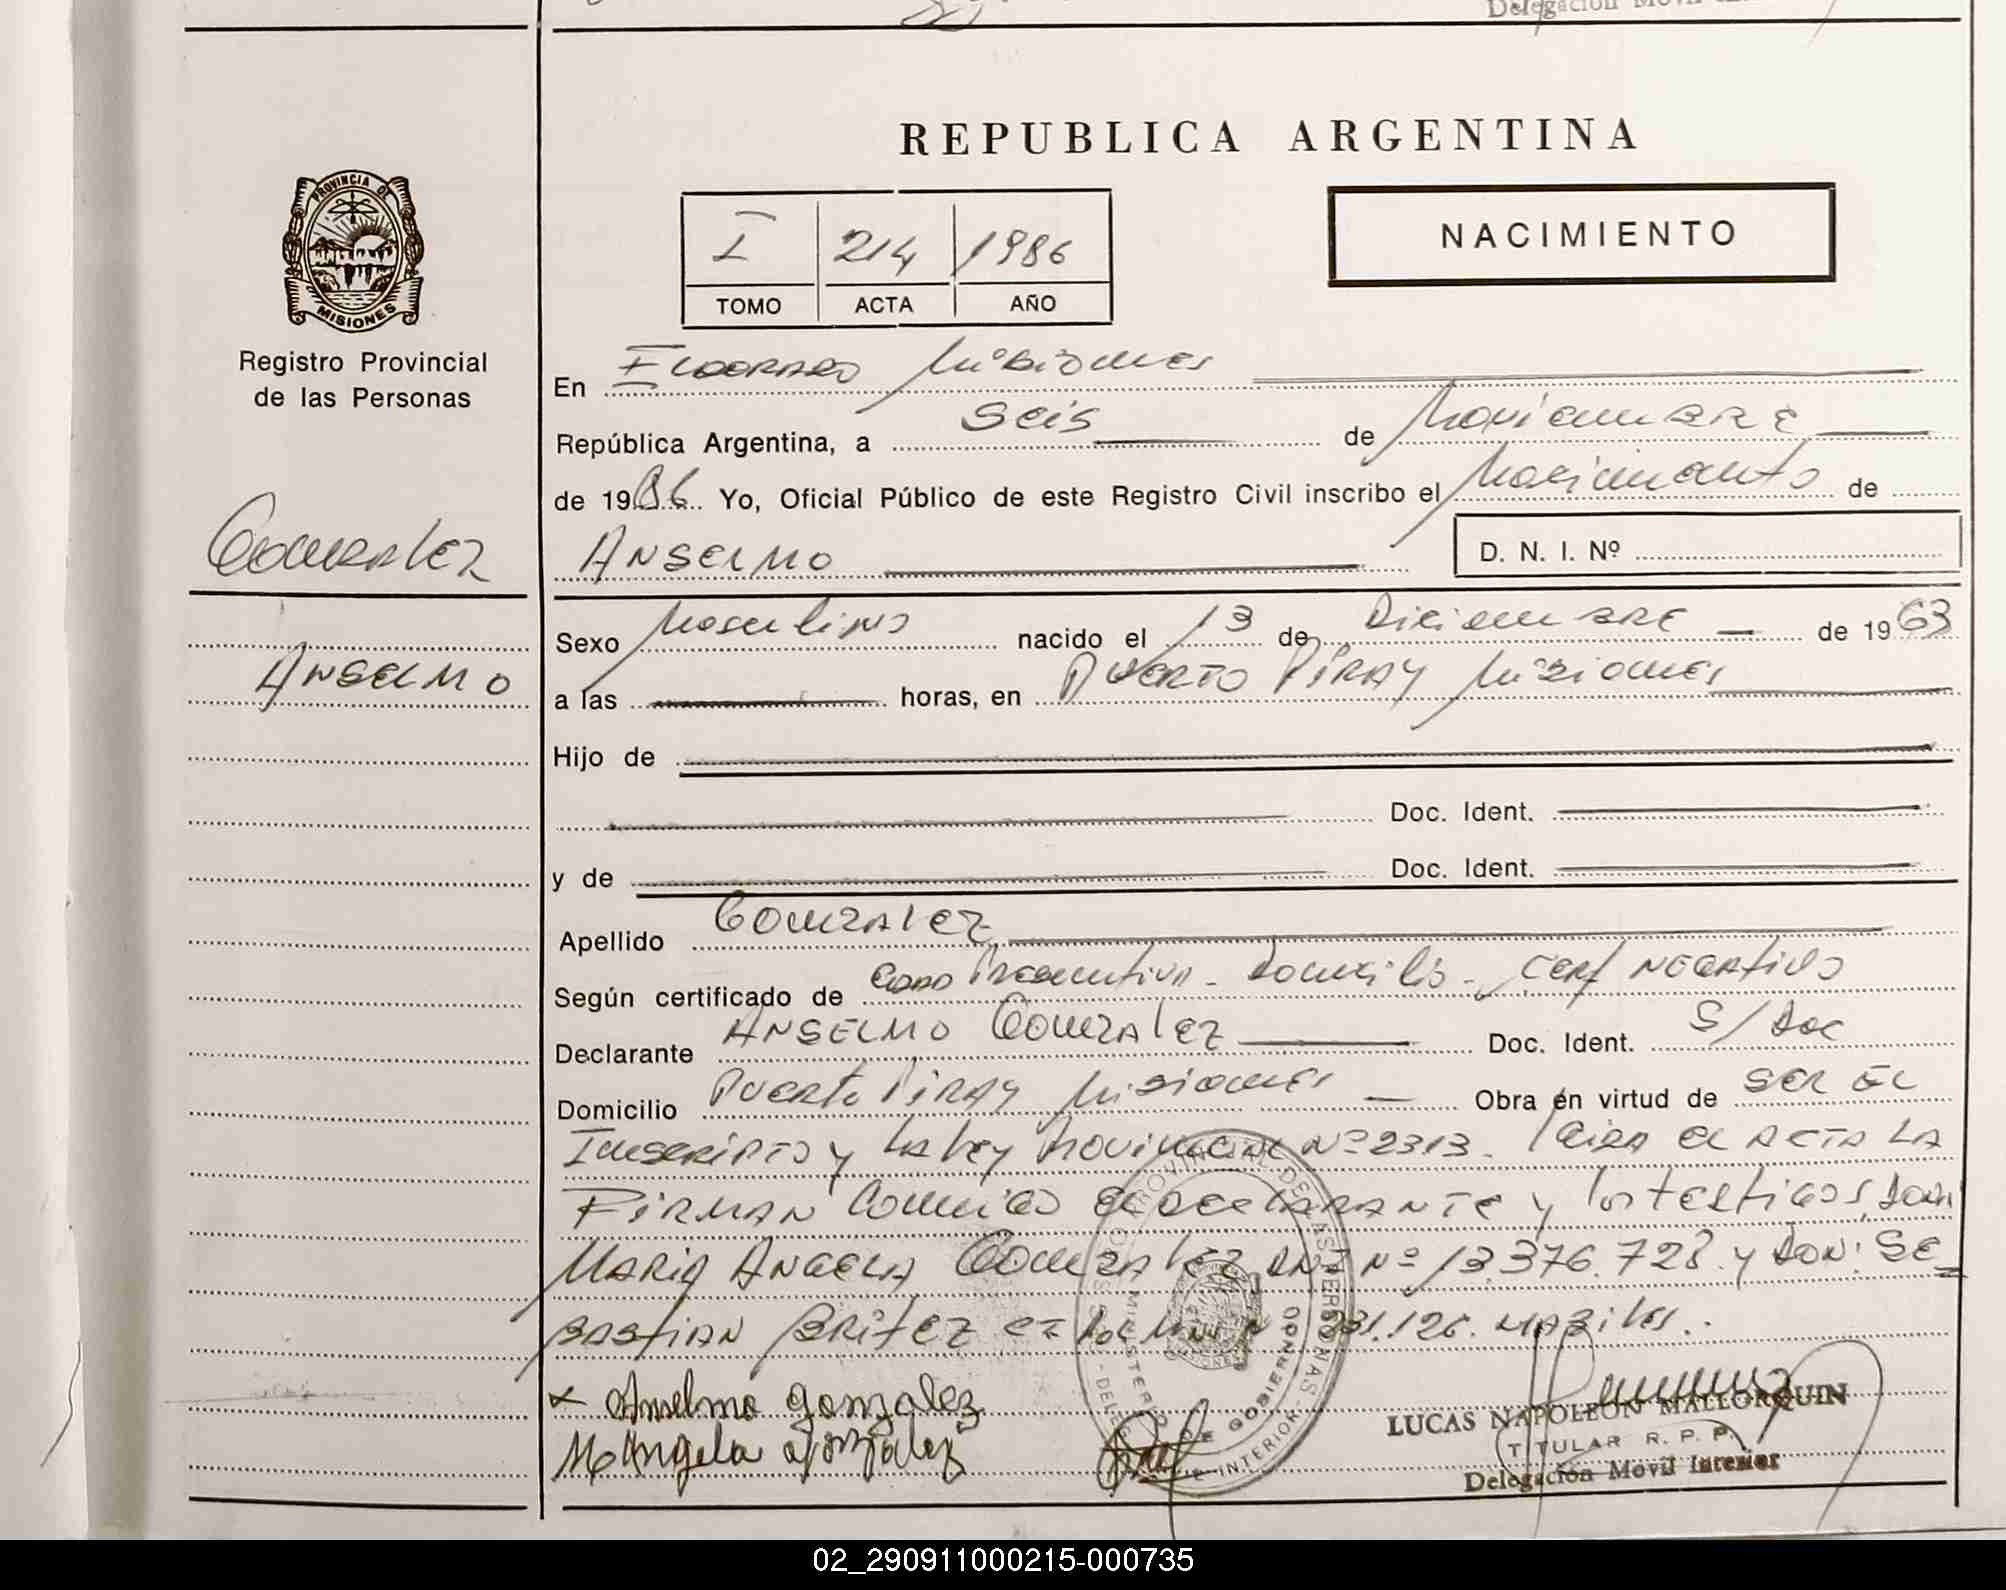 Delegación Móvil
REPUBLICA ARGENTINA
PROVINCIA DE
MISIONES
Registro Provincial
de las Personas
I 214 1986
TOMO ACTA AÑO
NACIMIENTO
En Eldorado Misiones
República Argentina, a seis de Noviembre
de 1986. Yo, Oficial Público de este Registro Civil inscribo el Nacimiento de
Gonzalez
Anselmo
D. N. I. Nº
Sexo Masculino nacido el 13 de Diciembre de 1963
Anselmo
a las horas, en Puerto Piray Misiones
Hijo de
Doc. Ident.
y de Doc. Ident.
Apellido Gonzalez
Según certificado de Edad Presuntiva - Domicilio - Cert Negativo
Declarante Anselmo Gonzalez Doc. Ident. S/Doc
Domicilio Puerto Piray Misiones Obra en virtud de ser el
Inscripto y la ley Provincial Nº 2313. Leida el acta la
Firman conmigo el declarante y los testigos, Doña
Maria Angela Gonzalez DNI Nº 13.376.728 y Don: Se=
bastian Britez 231.126. habiles.
x Anselmo gonzalez
M Angela Gonzalez
LUCAS NAPOLEON MALLORQUIN
TITULAR R. P. P.
Delegación Movil Interior
02_290911000215-000735